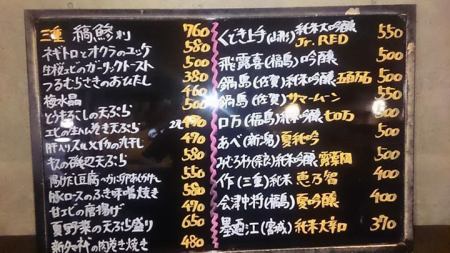 三重 縞鯵刺 760
ネギトロとオクラのユッケ 580
生桜エビのガーリックトースト 500
つるむらさきのおひたし 380
梅水晶 460
とうもろこしの天ぷら 500
エビの生ハム巻き天ぷら 2本 490
肝入スルメイカの丸干し 470
キスの磯辺天ぷら 550
揚げだし豆腐
豚ロースのふき味噌焼き 580
甘エビの唐揚げ 470
夏野菜の天ぷら盛り 650
新タマネギの肉巻き焼き 480
くどき上手(山形)純米大吟醸 Jr.RED 550
飛露喜(福島)吟醸 500
鍋島(佐賀)純米吟醸 五百万石 500
鍋島(佐賀)サマームーン 550
ロ万(福島)純米吟醸 七ロ万 500
あべ(新潟)夏純吟 500
みむろ杉(奈良)純米吟醸 露葉風 500
作(三重)純米 恵乃智 400
会津中将(福島)夏吟醸 400
墨廼江(宮城)純米大辛口 370